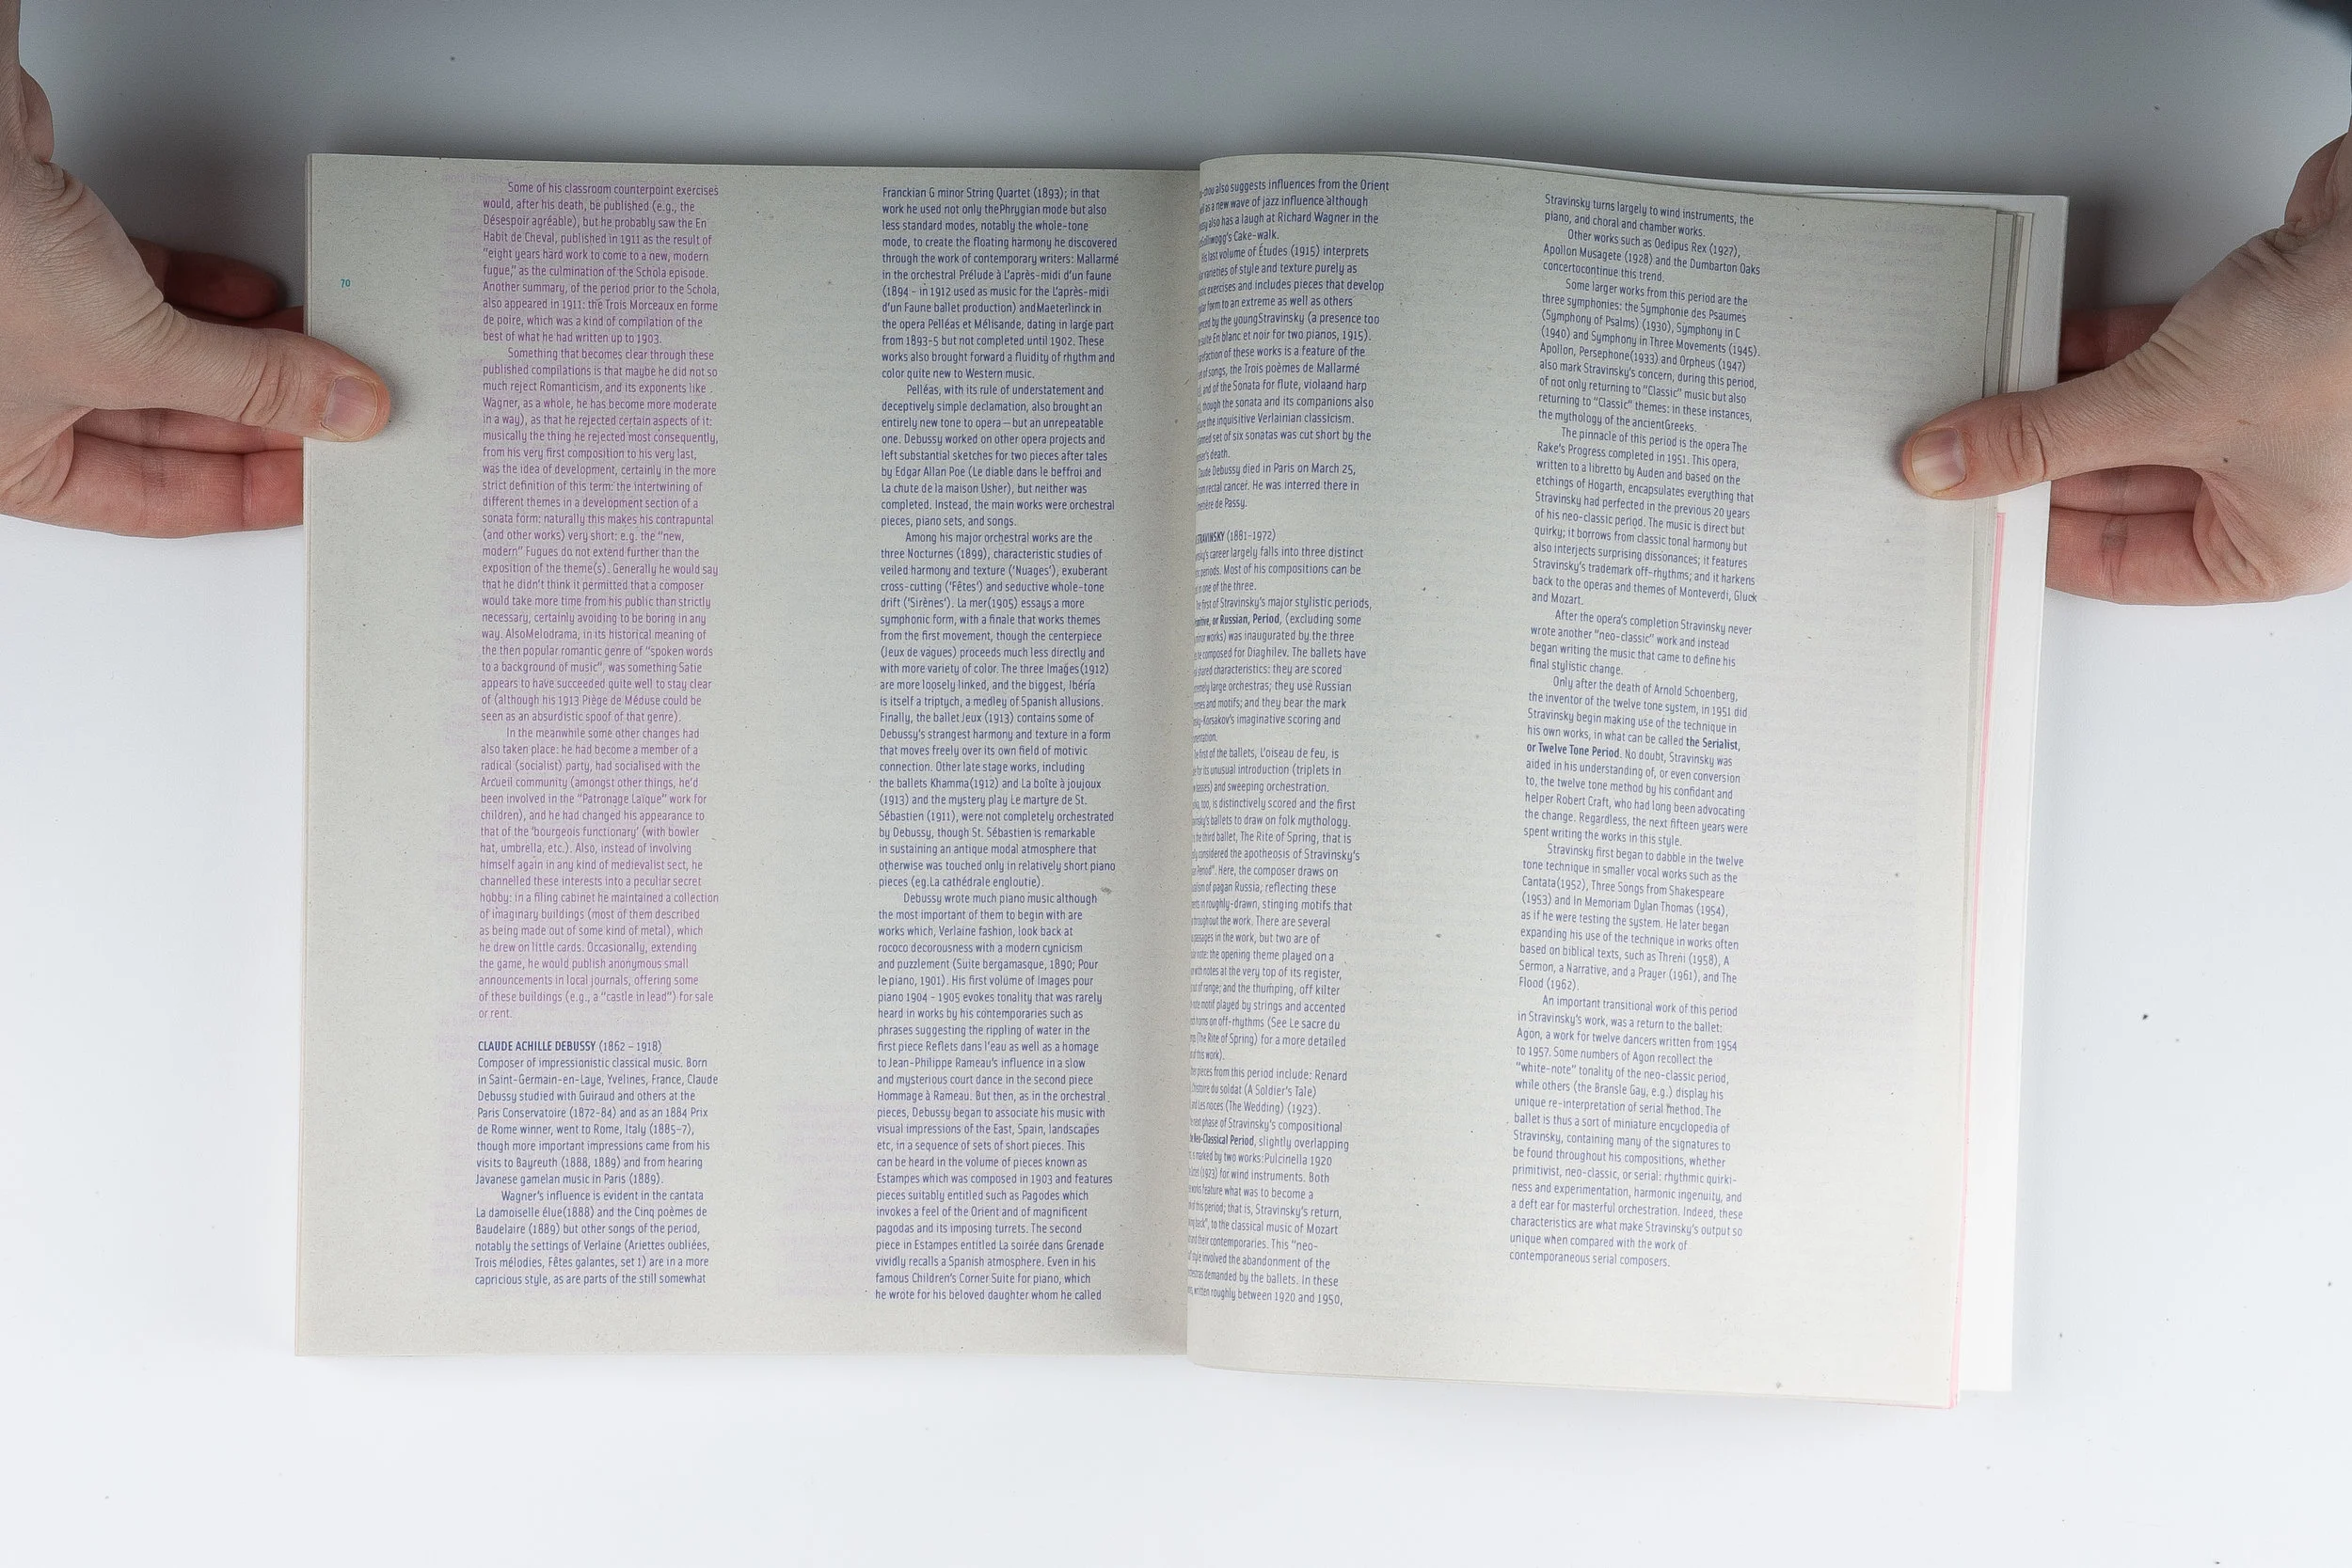 70
Some of his classroom counterpoint exercises
would, after his death, be published (e.g., the
Désespoir agréable), but he probably saw the En
Habit de Cheval, published in 1911 as the result of
"eight years hard work to come to a new, modern
fugue," as the culmination of the Schola episode.
Another summary, of the period prior to the Schola,
also appeared in 1911: the Trois Morceaux en forme
de poire, which was a kind of compilation of the
best of what he had written up to 1903.
Something that becomes clear through these
published compilations is that maybe he did not so
much reject Romanticism, and its exponents like
Wagner, as a whole, he has become more moderate
in a way), as that he rejected certain aspects of it:
musically the thing he rejected most consequently,
from his very first composition to his very last,
was the idea of development, certainly in the more
strict definition of this term: the intertwining of
different themes in a development section of a
sonata form: naturally this makes his contrapuntal
(and other works) very short: e.g. the "new,
modern" Fugues do not extend further than the
exposition of the theme(s). Generally he would say
that he didn't think it permitted that a composer
would take more time from his public than strictly
necessary, certainly avoiding to be boring in any
way. AlsoMelodrama, in its historical meaning of
the then popular romantic genre of "spoken words
to a background of music", was something Satie
appears to have succeeded quite well to stay clear
of (although his 1913 Piège de Méduse could be
seen as an absurdistic spoof of that genre).
In the meanwhile some other changes had
also taken place: he had become a member of a
radical (socialist) party, had socialised with the
Arcueil community (amongst other things, he'd
been involved in the "Patronage Laïque" work for
children), and he had changed his appearance to
that of the 'bourgeois functionary' (with bowler
hat, umbrella, etc.). Also, instead of involving
himself again in any kind of medievalist sect, he
channelled these interests into a peculiar secret
hobby: in a filing cabinet he maintained a collection
of imaginary buildings (most of them described
as being made out of some kind of metal), which
he drew on little cards. Occasionally, extending
the game, he would publish anonymous small
announcements in local journals, offering some
of these buildings (e.g., a "castle in lead") for sale
or rent.
CLAUDE ACHILLE DEBUSSY (1862 – 1918)
Composer of impressionistic classical music. Born
in Saint-Germain-en-Laye, Yvelines, France, Claude
Debussy studied with Guiraud and others at the
Paris Conservatoire (1872-84) and as an 1884 Prix
de Rome winner, went to Rome, Italy (1885-7),
though more important impressions came from his
visits to Bayreuth (1888, 1889) and from hearing
Javanese gamelan music in Paris (1889).
Wagner's influence is evident in the cantata
La damoiselle élue(1888) and the Cinq poèmes de
Baudelaire (1889) but other songs of the period,
notably the settings of Verlaine (Ariettes oubliées,
Trois mélodies, Fêtes galantes, set 1) are in a more
capricious style, as are parts of the still somewhat
Franckian G minor String Quartet (1893); in that
work he used not only thePhrygian mode but also
less standard modes, notably the whole-tone
mode, to create the floating harmony he discovered
through the work of contemporary writers: Mallarmé
in the orchestral Prélude à L'après-midi d'un faune
(1894 - in 1912 used as music for the L'après-midi
d'un Faune ballet production) andMaeterlinck in
the opera Pelléas et Mélisande, dating in large part
from 1893-5 but not completed until 1902. These
works also brought forward a fluidity of rhythm and
color quite new to Western music.
Pelléas, with its rule of understatement and
deceptively simple declamation, also brought an
entirely new tone to opera — but an unrepeatable
one. Debussy worked on other opera projects and
left substantial sketches for two pieces after tales
by Edgar Allan Poe (Le diable dans le beffroi and
La chute de la maison Usher), but neither was
completed. Instead, the main works were orchestral
pieces, piano sets, and songs.
Among his major orchestral works are the
three Nocturnes (1899), characteristic studies of
veiled harmony and texture ('Nuages'), exuberant
cross-cutting ('Fêtes') and seductive whole-tone
drift ('Sirènes'). La mer(1905) essays a more
symphonic form, with a finale that works themes
from the first movement, though the centerpiece
(Jeux de vagues) proceeds much less directly and
with more variety of color. The three Images(1912)
are more loosely linked, and the biggest, Ibéria
is itself a triptych, a medley of Spanish allusions.
Finally, the ballet Jeux (1913) contains some of
Debussy's strangest harmony and texture in a form
that moves freely over its own field of motivic
connection. Other late stage works, including
the ballets Khamma(1912) and La boîte à joujoux
(1913) and the mystery play Le martyre de St.
Sébastien (1911), were not completely orchestrated
by Debussy, though St. Sébastien is remarkable
in sustaining an antique modal atmosphere that
otherwise was touched only in relatively short piano
pieces (eg.La cathédrale engloutie).
Debussy wrote much piano music although
the most important of them to begin with are
works which, Verlaine fashion, look back at
rococo decorousness with a modern cynicism
and puzzlement (Suite bergamasque, 1890; Pour
le piano, 1901). His first volume of Images pour
piano 1904 - 1905 evokes tonality that was rarely
heard in works by his contemporaries such as
phrases suggesting the rippling of water in the
first piece Reflets dans l'eau as well as a homage
to Jean-Philippe Rameau's influence in a slow
and mysterious court dance in the second piece
Hommage à Rameau. But then, as in the orchestral
pieces, Debussy began to associate his music with
visual impressions of the East, Spain, landscapes
etc, in a sequence of sets of short pieces. This
can be heard in the volume of pieces known as
Estampes which was composed in 1903 and features
pieces suitably entitled such as Pagodes which
invokes a feel of the Orient and of magnificent
pagodas and its imposing turrets. The second
piece in Estampes entitled La soirée dans Grenade
vividly recalls a Spanish atmosphere. Even in his
famous Children's Corner Suite for piano, which
he wrote for his beloved daughter whom he called
also suggests influences from the Orient
as a new wave of jazz influence although
also has a laugh at Richard Wagner in the
Cake-walk.
last volume of Études (1915) interprets
varieties of style and texture purely as
exercises and includes pieces that develop
form to an extreme as well as others
by the youngStravinsky (a presence too
En blanc et noir for two pianos, 1915).
of these works is a feature of the
of songs, the Trois poèmes de Mallarmé
and of the Sonata for flute, violaand harp
though the sonata and its companions also
the inquisitive Verlainian classicism.
set of six sonatas was cut short by the
death.
Debussy died in Paris on March 25,
rectal cancer. He was interred there in
de Passy.
STRAVINSKY (1881-1972)
career largely falls into three distinct
periods. Most of his compositions can be
in one of the three.
first of Stravinsky's major stylistic periods,
or Russian, Period, (excluding some
works) was inaugurated by the three
composed for Diaghilev. The ballets have
shared characteristics: they are scored
large orchestras; they use Russian
and motifs; and they bear the mark
imaginative scoring and
first of the ballets, L'oiseau de feu, is
for its unusual introduction (triplets in
and sweeping orchestration.
too, is distinctively scored and the first
ballets to draw on folk mythology.
the third ballet, The Rite of Spring, that is
considered the apotheosis of Stravinsky's
Period". Here, the composer draws on
of pagan Russia; reflecting these
in roughly-drawn, stinging motifs that
throughout the work. There are several
passages in the work, but two are of
note: the opening theme played on a
with notes at the very top of its register,
out of range; and the thumping, off kilter
motif played by strings and accented
horns on off-rhythms (See Le sacre du
(The Rite of Spring) for a more detailed
this work).
pieces from this period include: Renard
du soldat (A Soldier's Tale)
Les noces (The Wedding) (1923).
next phase of Stravinsky's compositional
Neo-Classical Period, slightly overlapping
is marked by two works:Pulcinella 1920
(1923) for wind instruments. Both
feature what was to become a
of this period; that is, Stravinsky's return,
back", to the classical music of Mozart
and their contemporaries. This "neo-
style involved the abandonment of the
demanded by the ballets. In these
written roughly between 1920 and 1950,
Stravinsky turns largely to wind instruments, the
piano, and choral and chamber works.
Other works such as Oedipus Rex (1927),
Apollon Musagete (1928) and the Dumbarton Oaks
concertocontinue this trend.
Some larger works from this period are the
three symphonies: the Symphonie des Psaumes
(Symphony of Psalms) (1930), Symphony in C
(1940) and Symphony in Three Movements (1945).
Apollon, Persephone(1933) and Orpheus (1947)
also mark Stravinsky's concern, during this period,
of not only returning to "Classic" music but also
returning to "Classic" themes: in these instances,
the mythology of the ancientGreeks.
The pinnacle of this period is the opera The
Rake's Progress completed in 1951. This opera,
written to a libretto by Auden and based on the
etchings of Hogarth, encapsulates everything that
Stravinsky had perfected in the previous 20 years
of his neo-classic period. The music is direct but
quirky; it borrows from classic tonal harmony but
also interjects surprising dissonances; it features
Stravinsky's trademark off-rhythms; and it harkens
back to the operas and themes of Monteverdi, Gluck
and Mozart.
After the opera's completion Stravinsky never
wrote another "neo-classic" work and instead
began writing the music that came to define his
final stylistic change.
Only after the death of Arnold Schoenberg,
the inventor of the twelve tone system, in 1951 did
Stravinsky begin making use of the technique in
his own works, in what can be called the Serialist,
or Twelve Tone Period. No doubt, Stravinsky was
aided in his understanding of, or even conversion
to, the twelve tone method by his confidant and
helper Robert Craft, who had long been advocating
the change. Regardless, the next fifteen years were
spent writing the works in this style.
Stravinsky first began to dabble in the twelve
tone technique in smaller vocal works such as the
Cantata(1952), Three Songs from Shakespeare
(1953) and In Memoriam Dylan Thomas (1954),
as if he were testing the system. He later began
expanding his use of the technique in works often
based on biblical texts, such as Threni (1958), A
Sermon, a Narrative, and a Prayer (1961), and The
Flood (1962).
An important transitional work of this period
in Stravinsky's work, was a return to the ballet:
Agon, a work for twelve dancers written from 1954
to 1957. Some numbers of Agon recollect the
"white-note" tonality of the neo-classic period,
while others (the Bransle Gay, e.g.) display his
unique re-interpretation of serial method. The
ballet is thus a sort of miniature encyclopedia of
Stravinsky, containing many of the signatures to
be found throughout his compositions, whether
primitivist, neo-classic, or serial: rhythmic quirki-
ness and experimentation, harmonic ingenuity, and
a deft ear for masterful orchestration. Indeed, these
characteristics are what make Stravinsky's output so
unique when compared with the work of
contemporaneous serial composers.